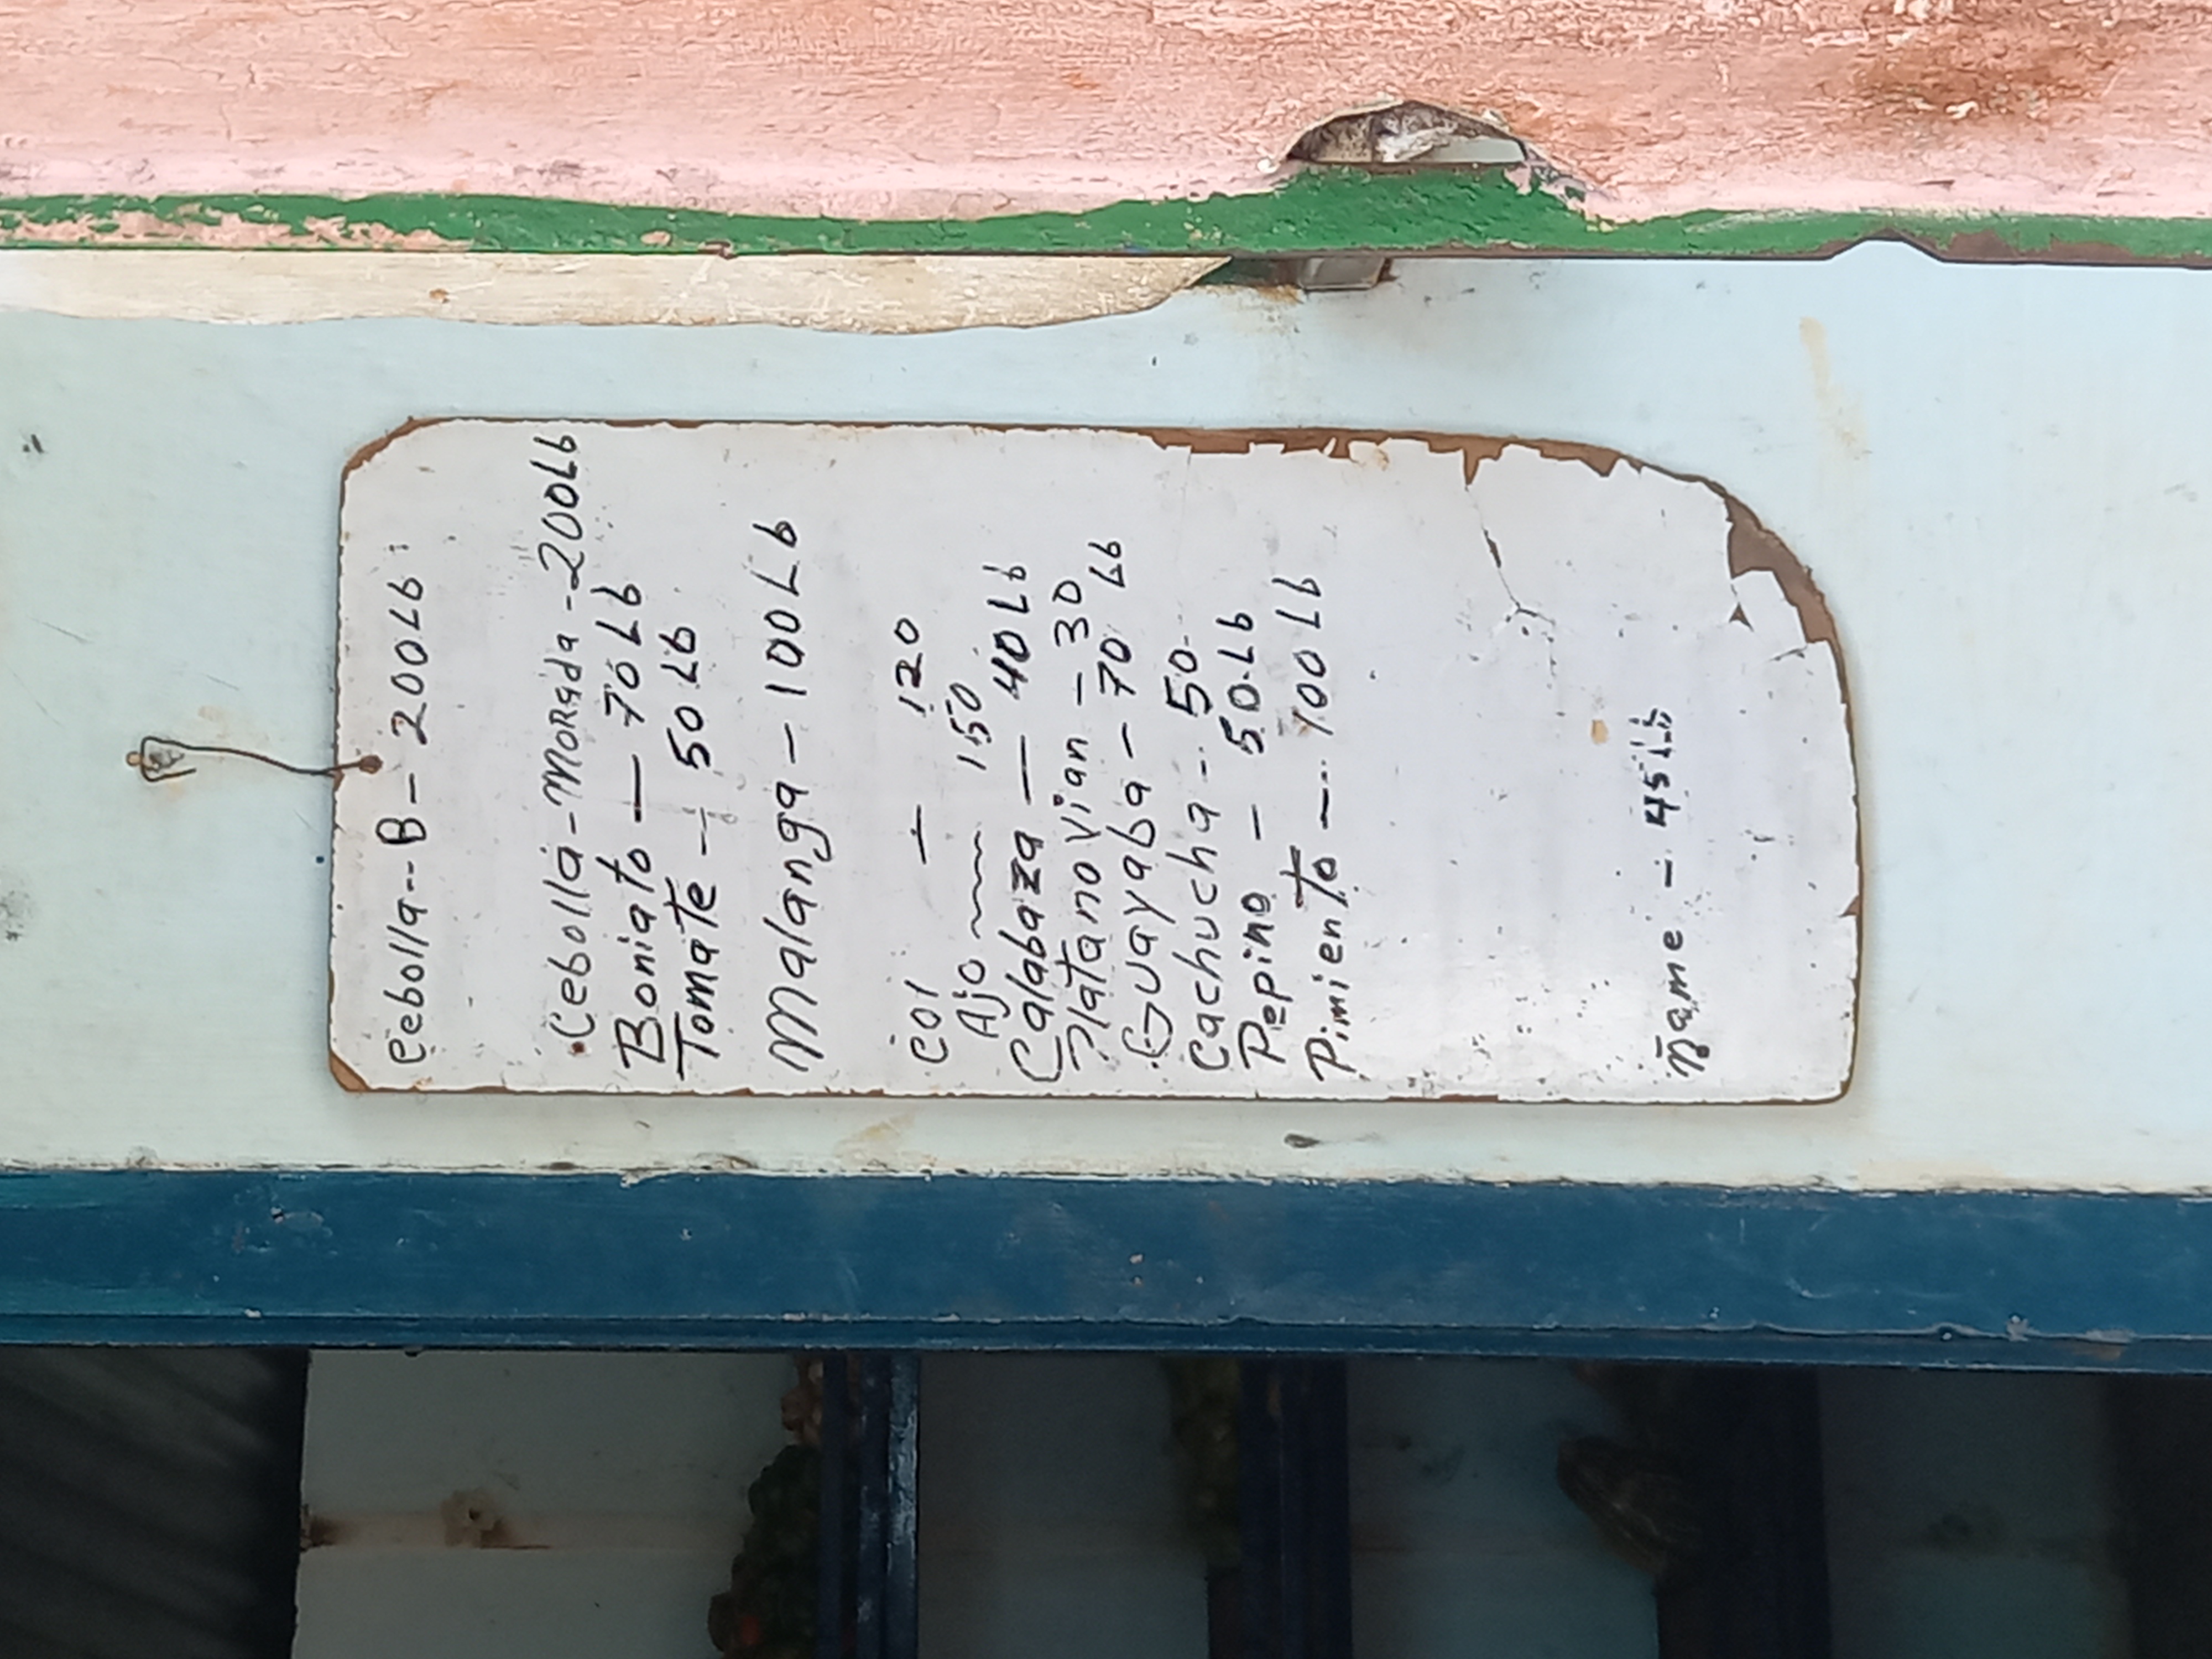 Cebolla-- B - 200 Lb
Cebolla - Morada - 200 Lb
Boniato — 70 Lb
Tomate — 50 Lb
Malanga - 100 Lb
Col — 120
Ajo ~~~ 150
Calabaza — 40 Lb
Platano Vian - 30
Guayaba - 70 Lb
Cachucha - 50
Pepino - 50 Lb
Pimiento — 100 Lb
Ñame - 45 Lb